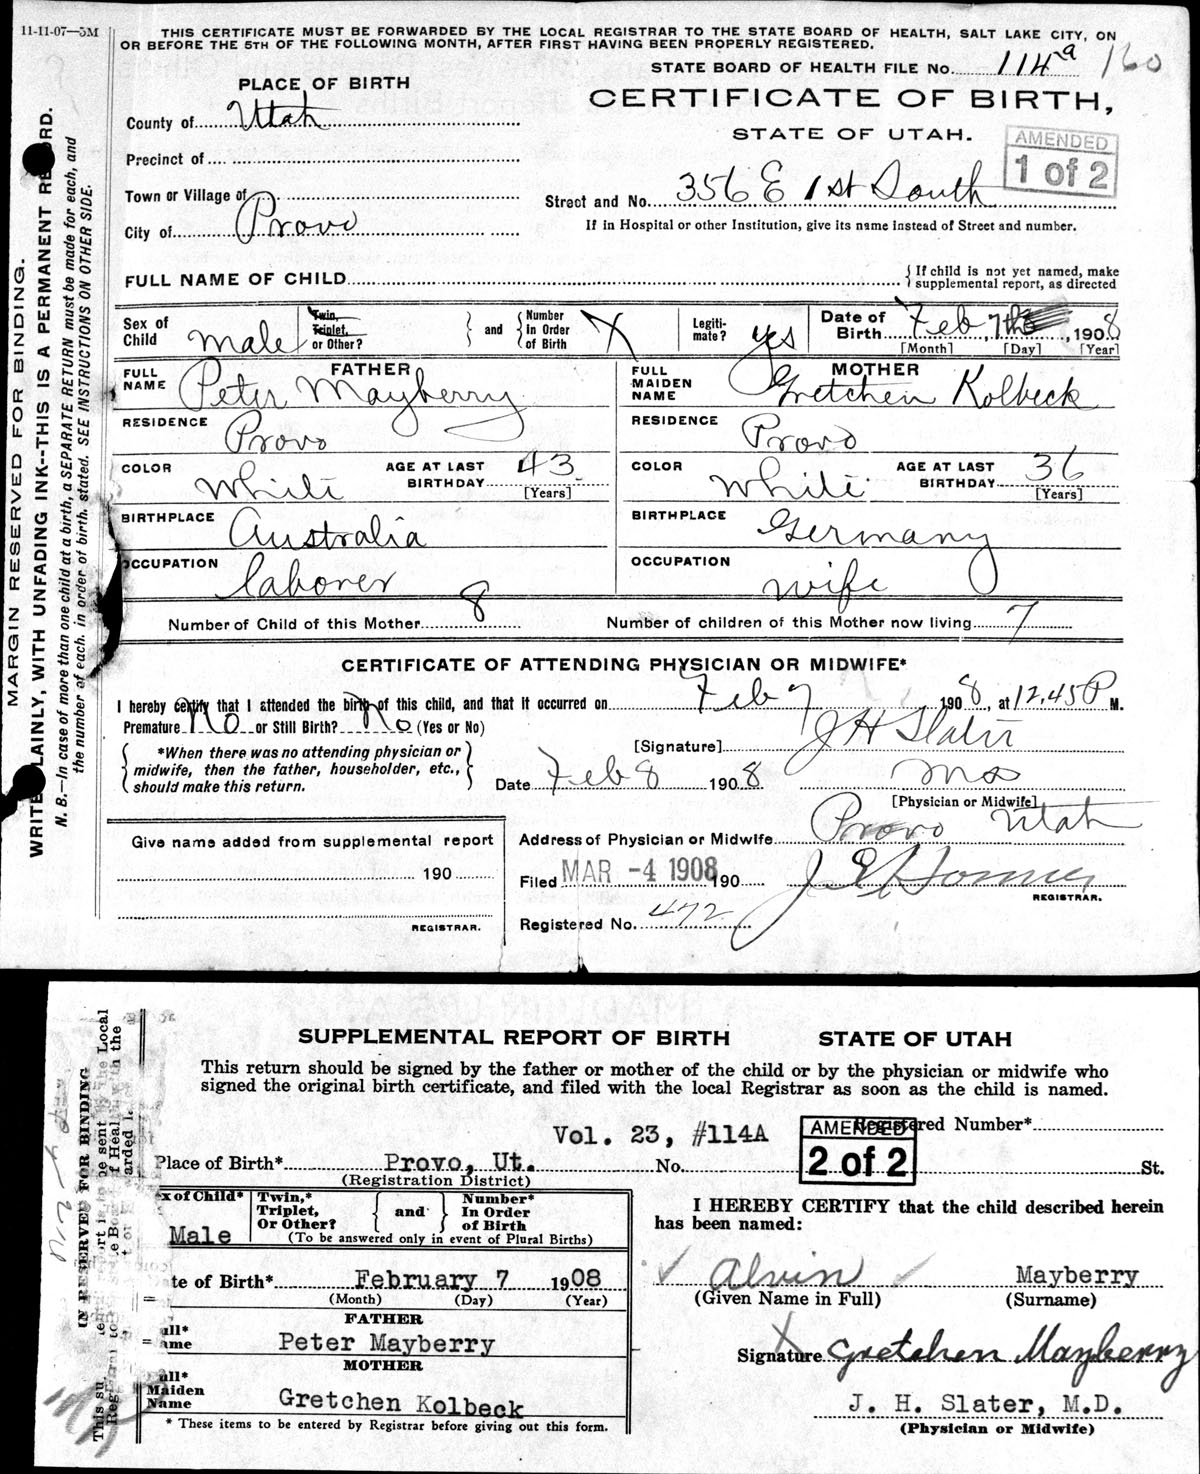 11-11-07—5M
THIS CERTIFICATE MUST BE FORWARDED BY THE LOCAL REGISTRAR TO THE STATE BOARD OF HEALTH, SALT LAKE CITY, ON
OR BEFORE THE 5TH OF THE FOLLOWING MONTH, AFTER FIRST HAVING BEEN PROPERLY REGISTERED.
STATE BOARD OF HEALTH FILE No. 114a 160
PLACE OF BIRTH
CERTIFICATE OF BIRTH,
STATE OF UTAH.
AMENDED
1 of 2
County of Utah
Precinct of
Town or Village of
City of Provo
Street and No. 356 E 1st South
If in Hospital or other Institution, give its name instead of Street and number.
FULL NAME OF CHILD
{ If child is not yet named, make
supplemental report, as directed
Sex of Child Male
Twin, Triplet, or Other?
and
Number In Order of Birth X
Legiti-mate? yes
Date of Birth Feb 7th, 1908
[Month] [Day] [Year]
FATHER
FULL NAME Peter Mayberry
MOTHER
FULL MAIDEN NAME Gretchen Kolbeck
RESIDENCE Provo
RESIDENCE Provo
COLOR White
AGE AT LAST BIRTHDAY 43 [Years]
COLOR White
AGE AT LAST BIRTHDAY 36 [Years]
BIRTHPLACE Australia
BIRTHPLACE Germany
OCCUPATION laborer
OCCUPATION wife
Number of Child of this Mother 8
Number of children of this Mother now living 7
CERTIFICATE OF ATTENDING PHYSICIAN OR MIDWIFE*
I hereby certify that I attended the birth of this child, and that it occurred on Feb 7, 1908, at 12,45 P M.
Premature No or Still Birth? No (Yes or No)
*When there was no attending physician or
midwife, then the father, householder, etc.,
should make this return.
[Signature] J H Slater
Date Feb 8 1908
[Physician or Midwife]
Address of Physician or Midwife Provo Utah
Give name added from supplemental report
190
REGISTRAR.
Filed MAR -4 1908 190
REGISTRAR.
Registered No. 472
MARGIN RESERVED FOR BINDING.
WRITE PLAINLY, WITH UNFADING INK--THIS IS A PERMANENT RECORD.
N. B.—In case of more than one child at a birth, a SEPARATE RETURN must be made for each, and
the number of each, in order of birth, stated. SEE INSTRUCTIONS ON OTHER SIDE.
SUPPLEMENTAL REPORT OF BIRTH STATE OF UTAH
This return should be signed by the father or mother of the child or by the physician or midwife who
signed the original birth certificate, and filed with the local Registrar as soon as the child is named.
Vol. 23, #114A
AMENDED
2 of 2
Registered Number*
Place of Birth* Provo, Ut. No. St.
(Registration District)
ex of Child* Male
Twin,* Triplet, Or Other?
and
Number* In Order of Birth
(To be answered only in event of Plural Births)
I HEREBY CERTIFY that the child described herein
has been named:
ate of Birth* February 7 1908
(Month) (Day) (Year)
Alvin Mayberry
(Given Name in Full) (Surname)
FATHER
ull* ame Peter Mayberry
MOTHER
ull* Maiden Name Gretchen Kolbeck
* These items to be entered by Registrar before giving out this form.
X
Signature Gretchen Mayberry
J. H. Slater, M.D.
(Physician or Midwife)
IN RESERVED FOR BINDING